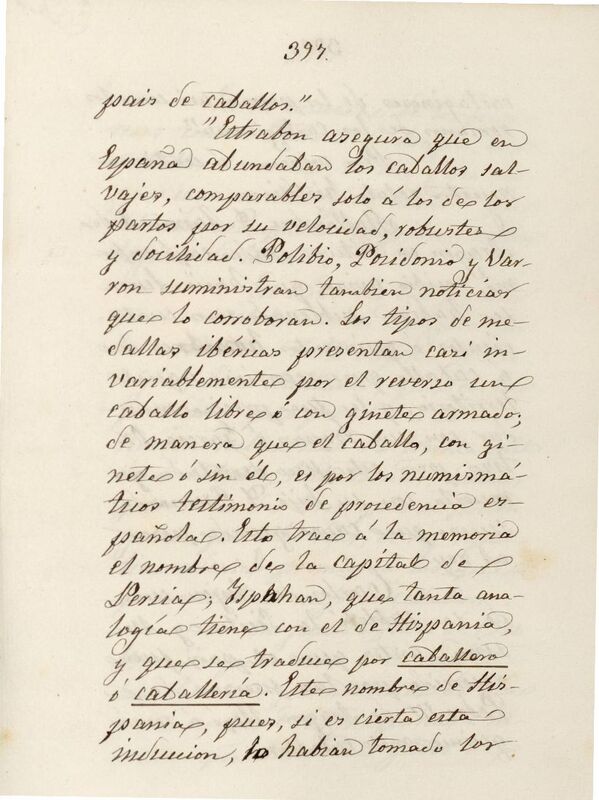 397.
pais de caballos."
"Estrabon asegura que en
España abundaban los caballos sal-
vajes, comparables solo á los de los
partos por su velocidad, robustez
y docilidad. Polibio, Posidonio y Var-
ron suministran tambien noticias
que lo corroboran. Los tipos de me-
dallas ibéricas presentan casi in-
variablemente por el reverso un
caballo libre ó con ginete armado;
de manera que el caballo, con gi-
nete ó sin él, es por los numismá-
ticos testimonio de procedencia es-
pañola. Esto trae á la memoria
el nombre de la capital de
Persia; Ispahan, que tanta ana-
logía tiene con el de Hispania,
y que se traduce por caballero
ó caballería. Este nombre de His-
pania, pues, si es cierta esta
induccion, lo habian tomado los